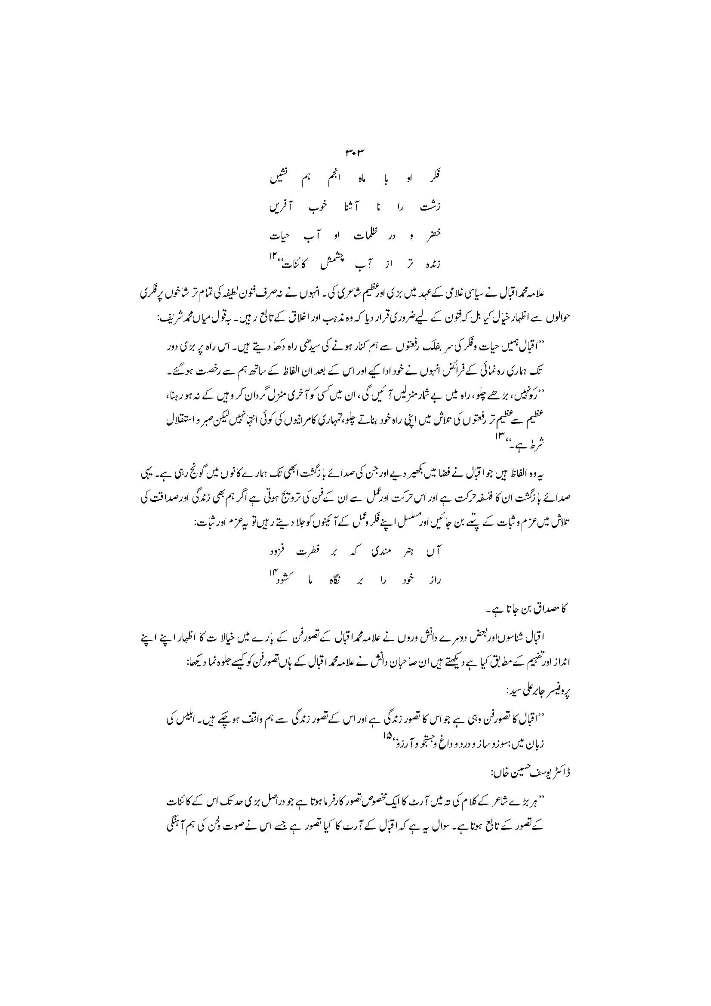 ۳۰۳
فکر او با ماہ انجم ہم نشیں
زشت را نا آشنا خوب آفریں
خضر و در ظلمات او آب حیات
زندہ تر از آب چشمش کائنات‘‘۱۲
علامہ محمد اقبال نے سیاسی غلامی کے عہد میں بڑی اور عظیم شاعری کی۔ انہوں نے نہ صرف فنون لطیفہ کی تمام تر شاخوں پر فکری
حوالوں سے اظہار خیال کیا بل کہ فنون کے لیے ضروری قرار دیا کہ وہ مذہب اور اخلاق کے تابع رہیں۔ بہ قول میاں محمد شریف:
’’اقبال ہمیں حیات و فکر کی سر بفلک رفعتوں سے ہم کنار ہونے کی سیدھی راہ دکھا دیتے ہیں۔ اس راہ پر بڑی دور
تک ہماری رہ نمائی کے فرائض انہوں نے خود ادا کیے اور اس کے بعد ان الفاظ کے ساتھ ہم سے رخصت ہو گئے۔
’’رکو نہیں، بڑھے چلو، راہ میں بے شمار منزلیں آئیں گی، ان میں کسی کو آخری منزل گردان کر وہیں کے نہ ہو رہنا،
عظیم سے عظیم تر رفعتوں کی تلاش میں اپنی راہ خود بناتے چلو، تمہاری کامرانیوں کی کوئی انتہا نہیں لیکن صبر و استقلال
شرط ہے۔‘‘۱۳
یہ وہ الفاظ ہیں جو اقبال نے فضا میں بکھیر دیے اور جن کی صدائے بازگشت ابھی تک ہمارے کانوں میں گونج رہی ہے۔ یہی
صدائے بازگشت ان کا فلسفہ حرکت ہے اور اس حرکت اور عمل سے ان کے فن کی ترویج ہوتی ہے اگر ہم بھی زندگی اور صداقت کی
تلاش میں عزم و ثبات کے پتلے بن جائیں اور مسلسل اپنے فکر و عمل کے آئینوں کو جلا دیتے رہیں تو یہ عزم اور ثبات:
آں ہنر مندی کہ بر فطرت فزود
راز خود را بر نگاہ ما کشود۱۴
کا مصداق بن جاتا ہے۔
اقبال شناسوں اور بعض دوسرے دانش وروں نے علامہ محمد اقبال کے تصور فن کے بارے میں خیالات کا اظہار اپنے اپنے
انداز اور تفہیم کے مطابق کیا ہے دیکھتے ہیں ان صاحبان دانش نے علامہ محمد اقبال کے ہاں تصور فن کو کیسے جلوہ نما دیکھا:
پروفیسر جابر علی سید:
’’اقبال کا تصور فن وہی ہے جو اس کا تصور زندگی ہے اور اس کے تصور زندگی سے ہم واقف ہو چکے ہیں۔ ابلیس کی
زبان میں: سوز و ساز و درد و داغ و جستجو و آرزو‘‘۱۵
ڈاکٹر یوسف حسین خاں:
’’ہر بڑے شاعر کے کلام کی تہ میں آرٹ کا ایک مخصوص تصور کارفرما ہوتا ہے جو دراصل بڑی حد تک اس کے کائنات
کے تصور کے تابع ہوتا ہے۔ سوال یہ ہے کہ اقبال کے آرٹ کا کیا تصور ہے جسے اس نے صوت و لحن کی ہم آہنگی